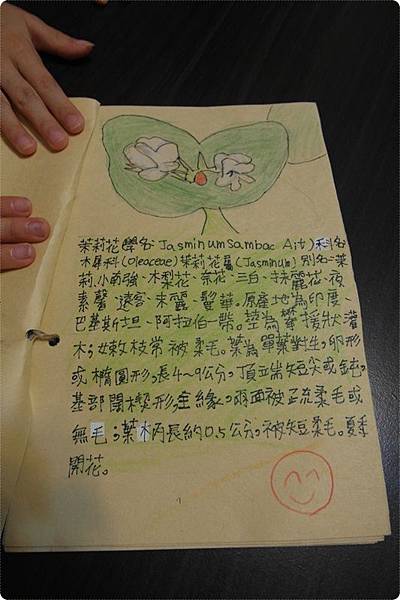 茉莉花(學名:Jasminum Sambac Ait)科名
木犀科(Oleaceae)茉莉花屬(Jasminum)別名:茉
莉、小南強、木梨花、奈花、三白、抹麗花、夜
素馨、遠客、末麗、鬘華。原產地為印度、
巴基斯坦、阿拉伯一帶。莖為攀援狀灌
木;嫩枝常被柔毛。葉為單葉對生。卵形
或橢圓形,長4~9公分。頂端短尖或鈍,
基部闊楔形,全緣。兩面被疏柔毛或
無毛;葉柄長約0.5公分。被短柔毛。夏季
開花。